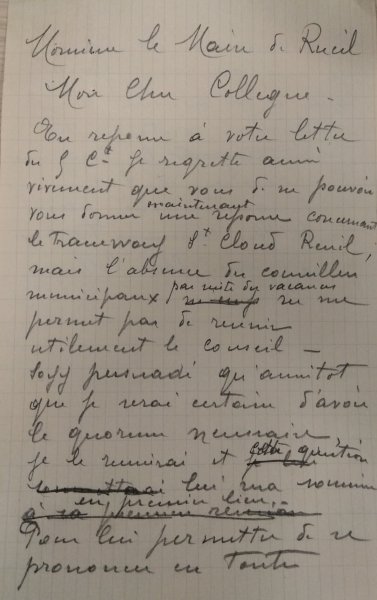 Monsieur le Maire de Rueil
Mon Cher Collegue -
En reponse à votre lettre
du 9 Ct je regrette aussi
vivement que vous de ne pouvoir
maintenant
vous donner une reponse concernant
le tramway St Cloud Rueil,
mais l'absence des conseillers
par suite des vacances
municipaux ne me
permet pas de reunir
utilement le conseil -
Soyez persuadé qu'aussitot
que je serai certain d'avoir
le quorum necessaire,
je le reunirai et cette question
lui sera soumise
en premier lieu, -
à sa premiere reunion
Pour lui permettre de se
prononcer en toute